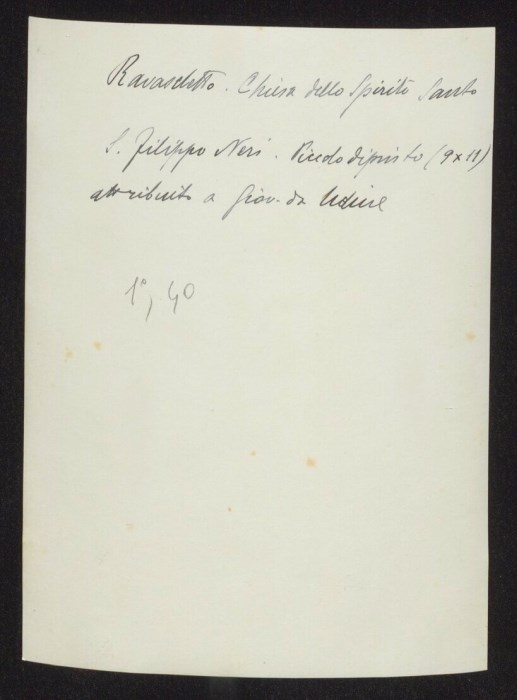 Ravascletto. Chiesa dello Spirito Santo
S. Filippo Neri. Piccolo dipinto (9x11)
attribuito a Giov. da Udine
1°, 40